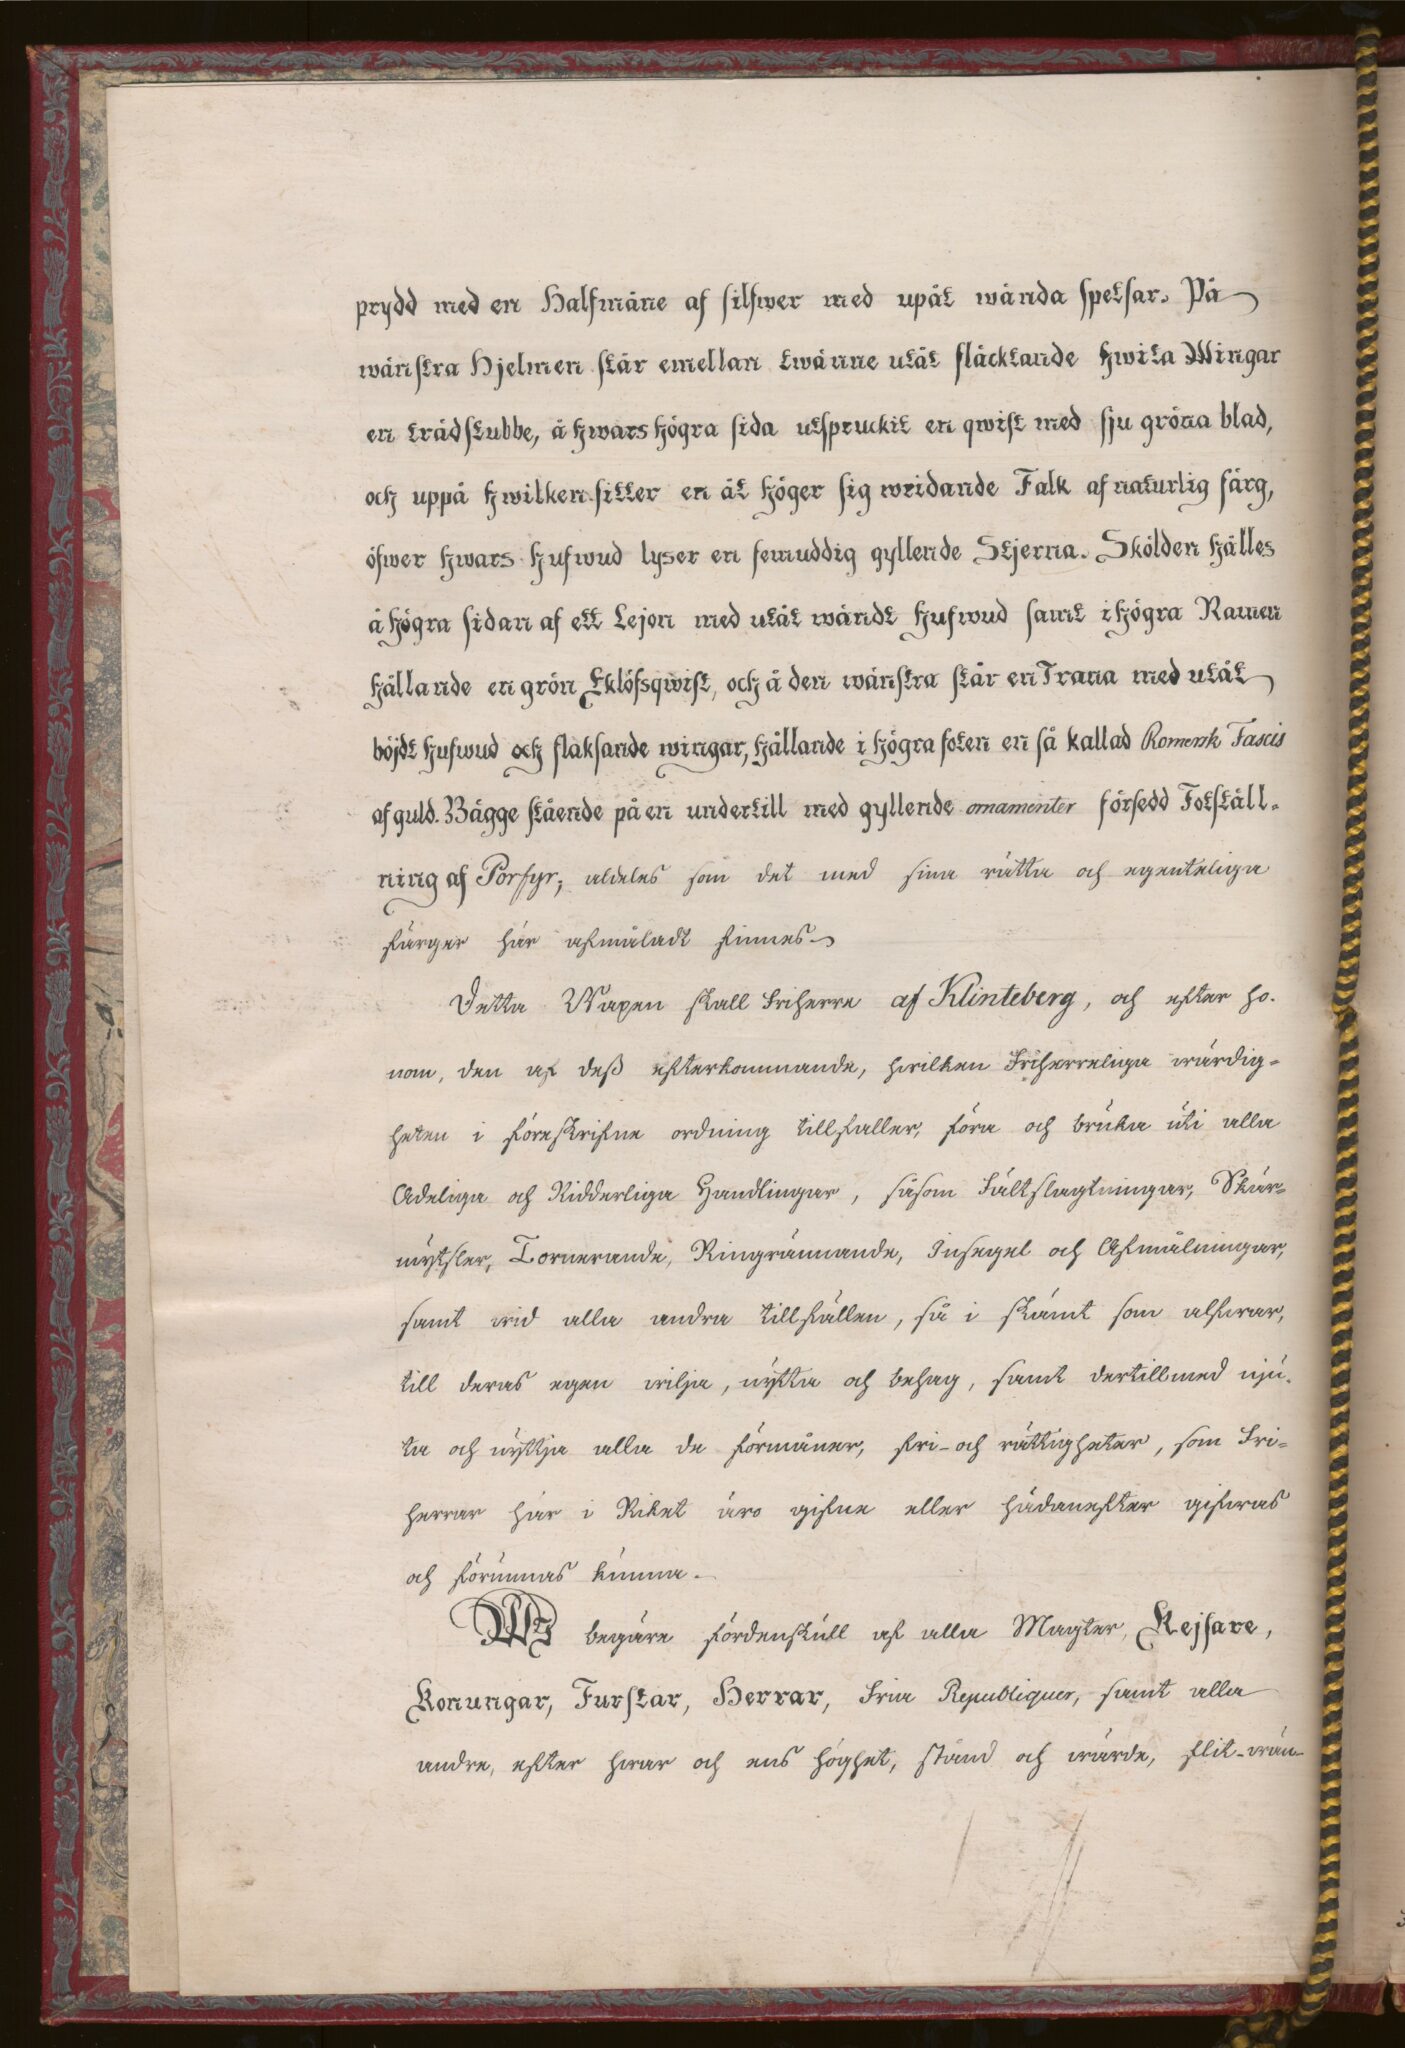 prydd med en Halfmåne af silfwer med upåt wända spetsar. På
wänstra Hjelmen står emellan twänne utåt fläcktande hwita Wingar
en trädstubbe, å hwars högra sida utspruckit en qwist med sju gröna blad,
och uppå hwilken sitter en åt höger sig wridande Falk af naturlig färg,
öfwer hwars hufwud lyser en femuddig gyllende Stjerna. Skölden hålles
å högra sidan af ett Lejon med utåt wändt hufwud samt i högra Ramen
hållande en grön Eklöfsqwist, och å den wänstra står en Trana med utåt
böjdt hufwud och flaksande wingar, hållande i högra foten en så kallad Romersk Fascis
af guld. Bägge stående på en undertill med gyllende ornamenter försedd Fotställ-
ning af Porfyr; aldeles som det med sina rätta och egenteliga
färger här afmåladt finnes.
Detta Wapen skall Friherre af Klinteberg, och efter ho-
nom, den af deß efterkommande, hwilken Friherreliga wärdig-
heten i föreskrifne ordning tillfaller, föra och bruka uti alla
Adeliga och Ridderliga Handlingar, såsom Fältslagtningar, Skär-
mytsler, Tornerande, Ringrännande, Insegel och Afmålningar,
samt wid alla andra tillfällen, så i skämt som alfwar,
till deras egen wilja, nytta och behag, samt dertillmed nju-
ta och nyttja alla de förmåner, fri- och rättigheter, som Fri-
herrar här i Riket äro gifne eller hädanefter gifwas
och förunnas kunna.
Wj begäre fördenskull af alla Magter, Kejsare,
Konungar, Furstar, Herrar, Fria Republiquer, samt alla
andre, efter hwar och ens höghet, stånd och wärde, flit-wän-